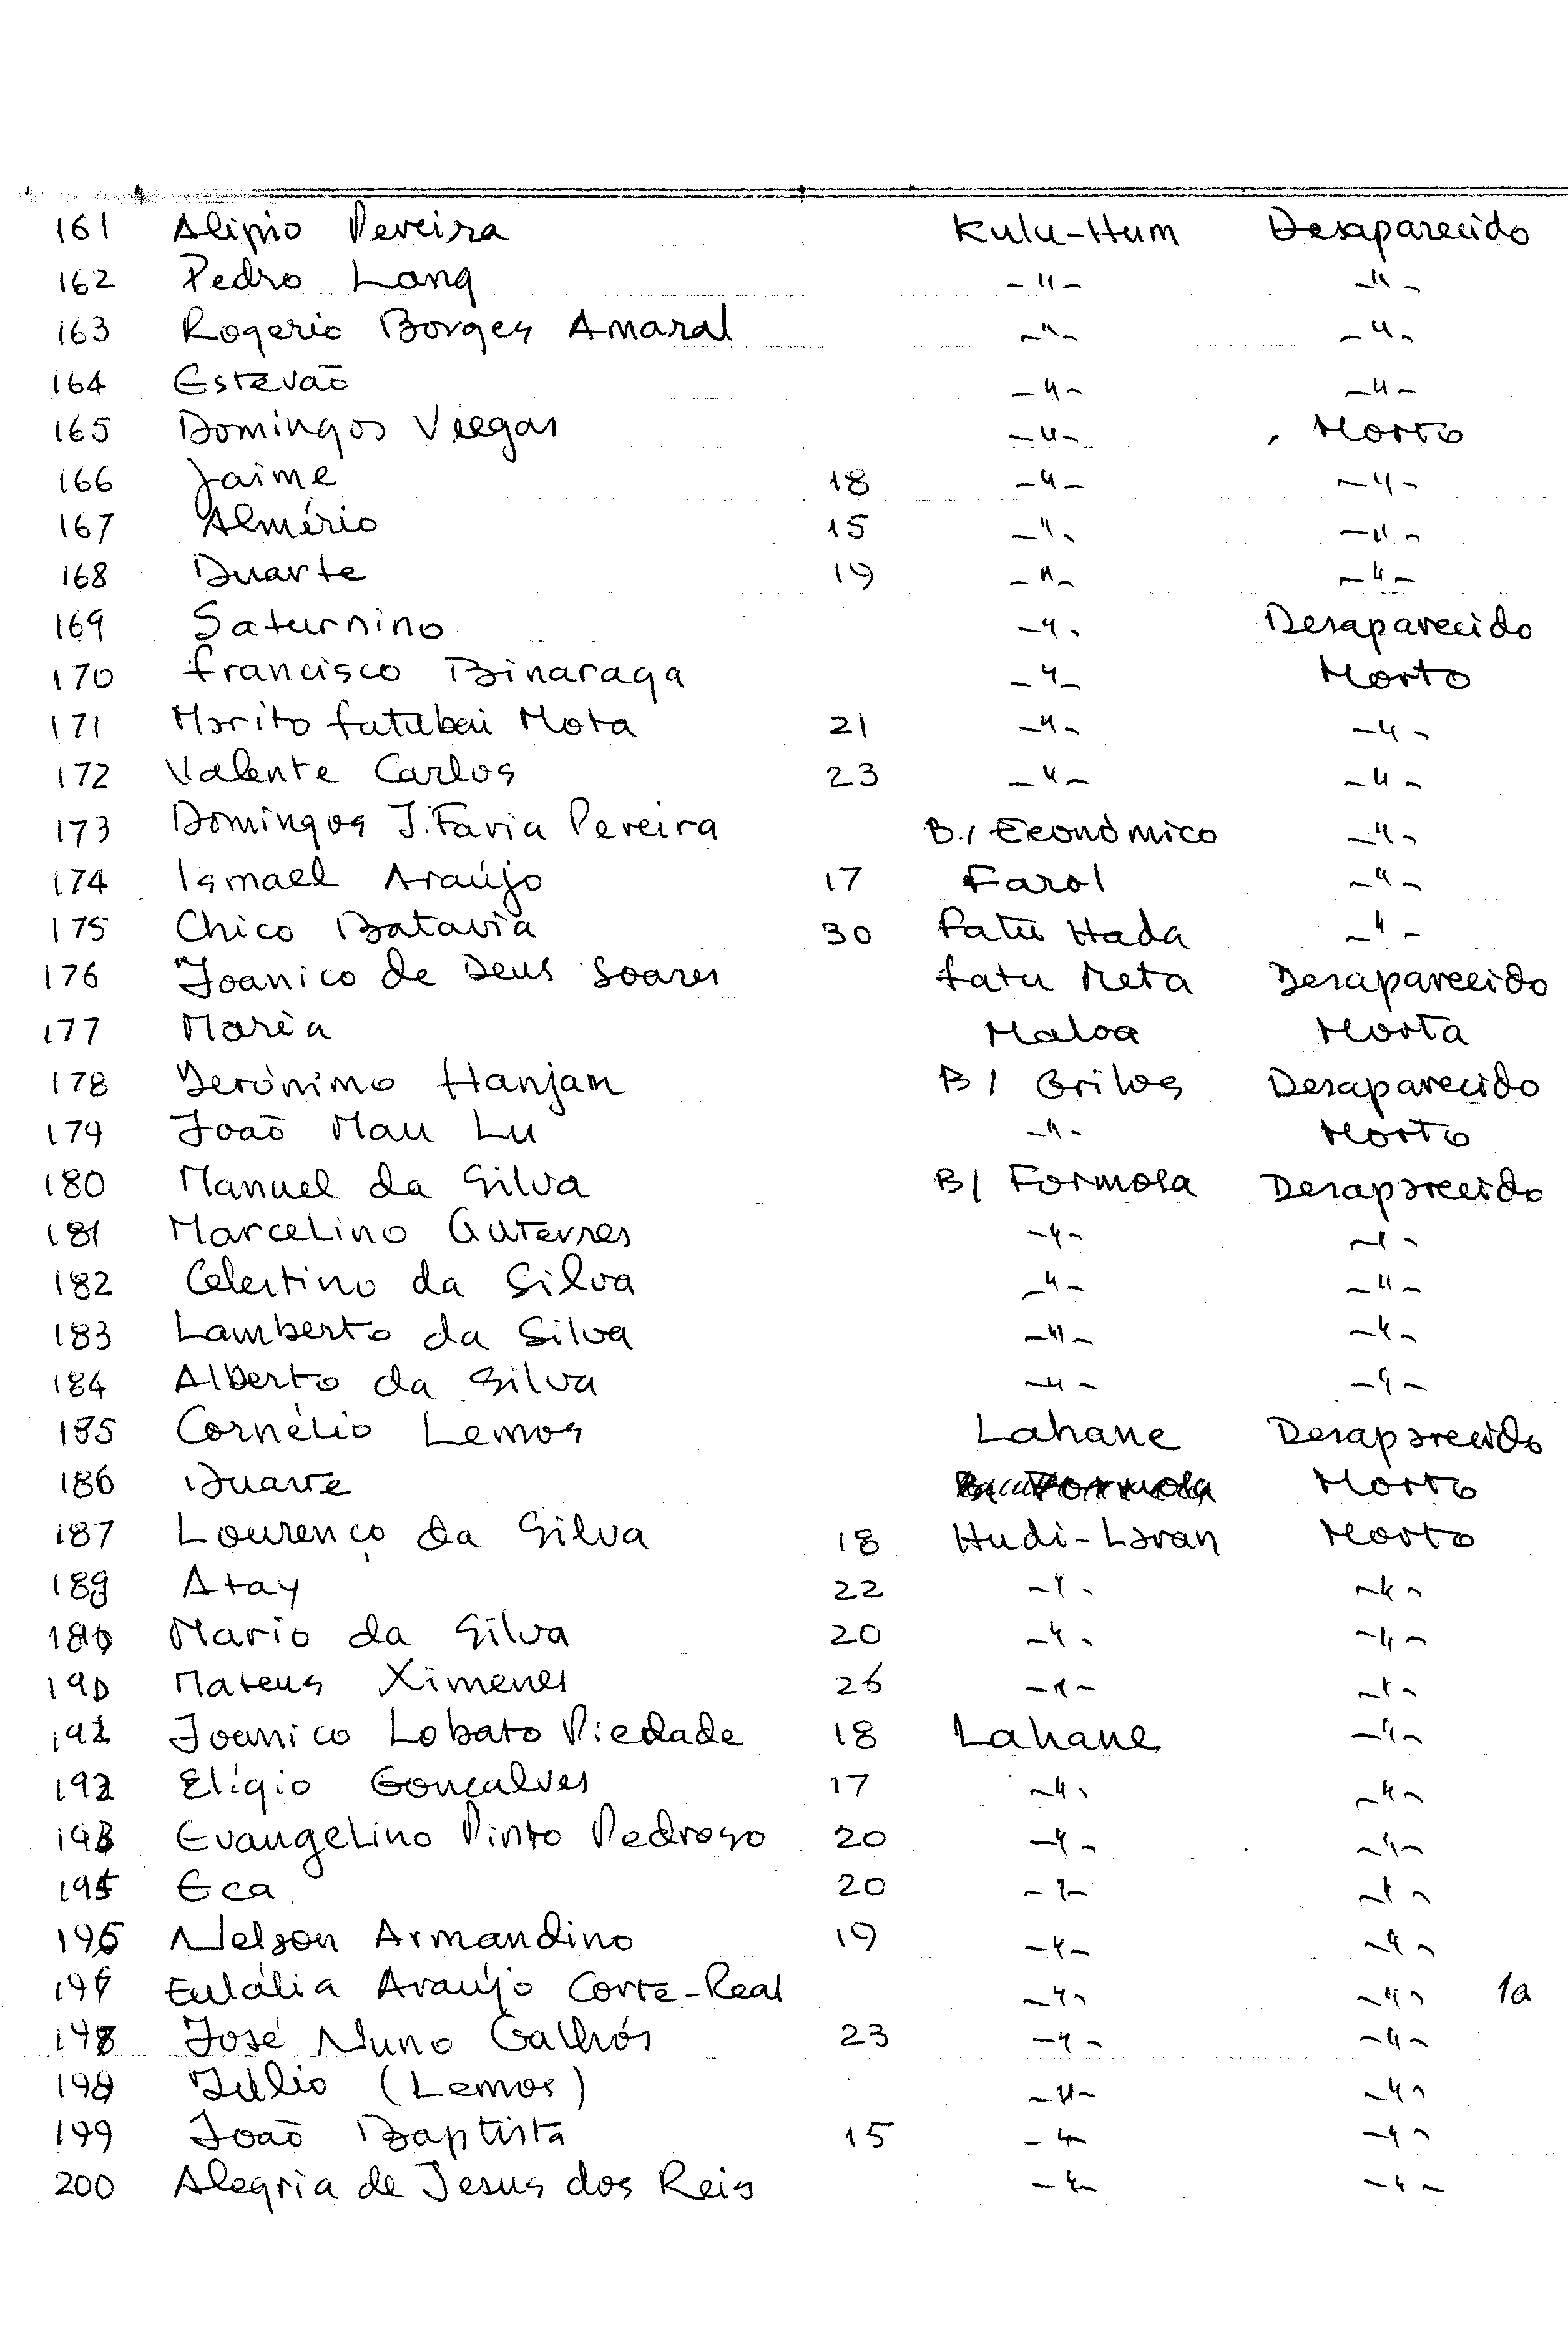 161 Alipio Pereira Kulu-Hum Desaparecido
162 Pedro Lang -"- -"-
163 Rogerio Borges Amaral -"- -"-
164 Estevão -"- -"-
165 Domingos Viegas -"- Morto
166 Jaime 18 -"- -"-
167 Almério 15 -"- -"-
168 Duarte 19 -"- -"-
169 Saturnino -"- Desaparecido
170 Francisco Binaraga -"- Morto
171 Marito Fatubai Mota 21 -"- -"-
172 Valente Carlos 23 -"- -"-
173 Domingos J. Faria Pereira B./ Económico -"-
174 Ismael Araújo 17 Farol -"-
175 Chico Batavia 30 Fatu Hada -"-
176 Joanico de Deus Soares Fatu Meta Desaparecido
177 Maria Maloa Morta
178 Jerónimo Hanjam B/ Grilos Desaparecido
179 João Mau Lu -"- Morto
180 Manuel da Silva B/ Formosa Desaparecido
181 Marcelino Guterres -"- -"-
182 Celestino da Silva -"- -"-
183 Lamberto da Silva -"- -"-
184 Alberto da Silva -"- -"-
185 Cornélio Lemos Lahane Desaparecido
186 Duarte Morto
187 Lourenço da Silva 18 Hudi-Laran Morto
188 Atay 22 -"- -"-
189 Mario da Silva 20 -"- -"-
190 Mateus Ximenes 26 -"- -"-
191 Joanico Lobato Piedade 18 Lahane -"-
192 Elígio Gonçalves 17 -"- -"-
193 Evangelino Pinto Pedroso 20 -"- -"-
194 Eca 20 -"- -"-
195 Nelson Armandino 19 -"- -"-
196 Eulália Araújo Corte-Real -"- -"- 1a
197 José Nuno Galhós 23 -"- -"-
198 Júlio (Lemos) -"- -"-
199 João Baptista 15 -"- -"-
200 Alegria de Jesus dos Reis -"- -"-